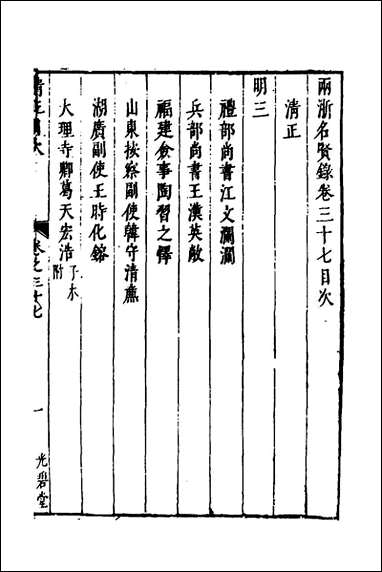 兩浙名賢錄卷三十七目次
清正
明三
禮部尚書江文瀾瀾
兵部尚書王漢英敞
福建僉事陶習之懌
山東按察副使韓守清廉
湖廣副使王時化鎔
大理寺卿葛天宏浩子木附
清正目次
卷之三十七
一
光碧堂